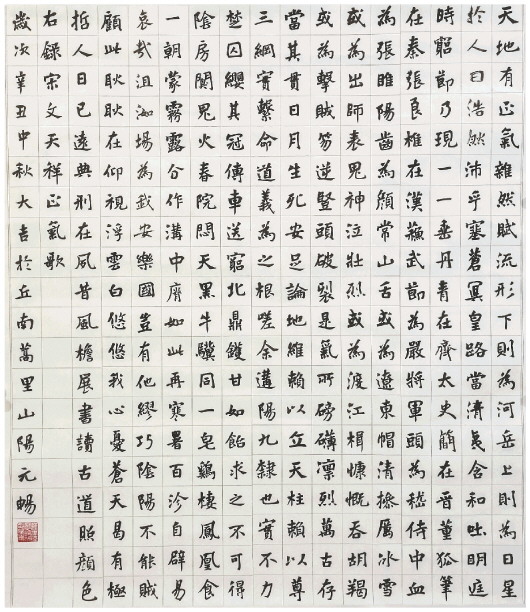 天地有正氣雜然賦流形下則為河岳上則為日星
於人曰浩然沛乎塞蒼冥皇路當清夷含和吐明庭
時窮節乃現一一垂丹青在齊太史簡在晉董狐筆
在秦張良椎在漢蘇武節為嚴將軍頭為嵇侍中血
為張睢陽齒為顏常山舌或為遼東帽清操厲冰雪
或為出師表鬼神泣壯烈或為渡江楫慷慨吞胡羯
或為擊賊笏逆豎頭破裂是氣所磅礴凜烈萬古存
當其貫日月生死安足論地維賴以立天柱賴以尊
三綱實繫命道義為之根嗟余遘陽九隸也實不力
楚囚纓其冠傳車送窮北鼎鑊甘如飴求之不可得
陰房闃鬼火春院閟天黑牛驥同一皂鷄棲鳳凰食
一朝蒙霧露分作溝中瘠如此再寒暑百沴自辟易
哀哉沮洳場為我安樂國豈有他繆巧陰陽不能賊
顧此耿耿在仰視浮雲白悠悠我心憂蒼天曷有極
哲人日已遠典刑在夙昔風檐展書讀古道照顏色
右錄宋文天祥正氣歌
歲次辛丑中秋大吉於丘南蒿里山陽元暢